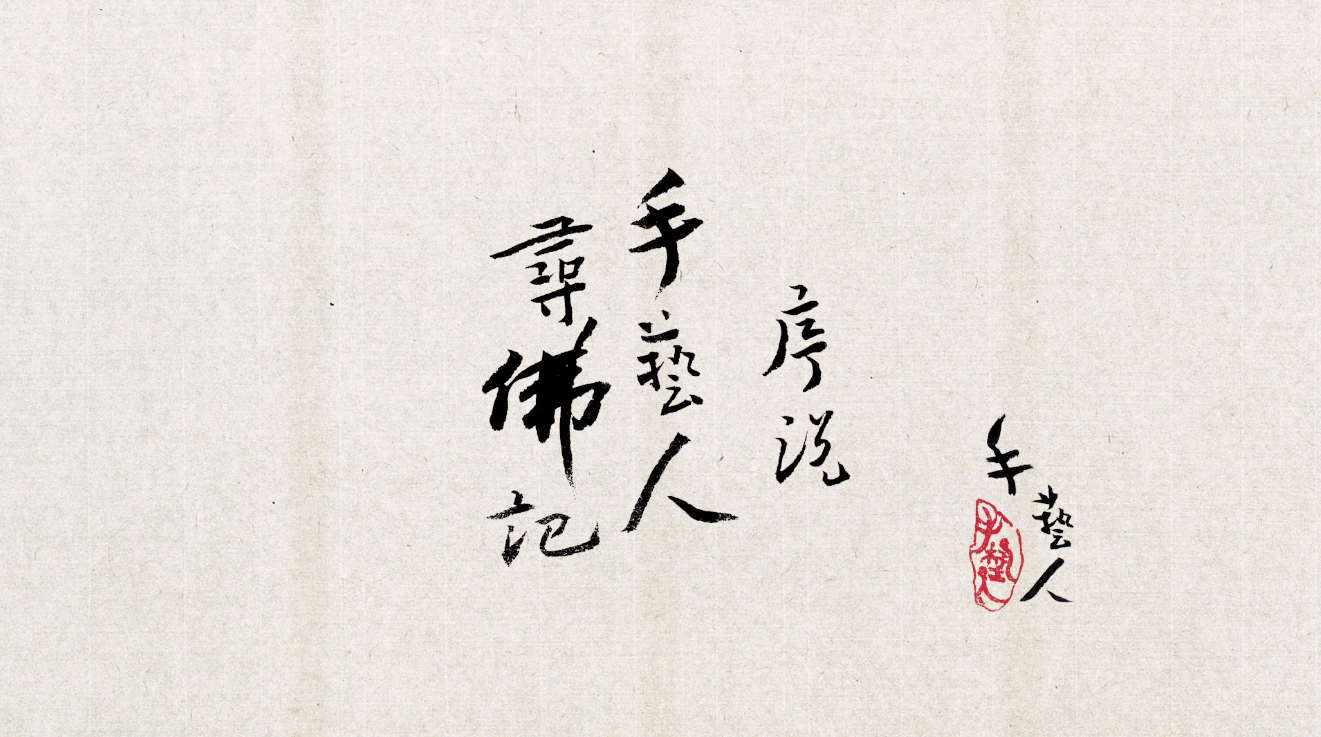 序说
手藝人
尋佛記
手藝人
手藝人